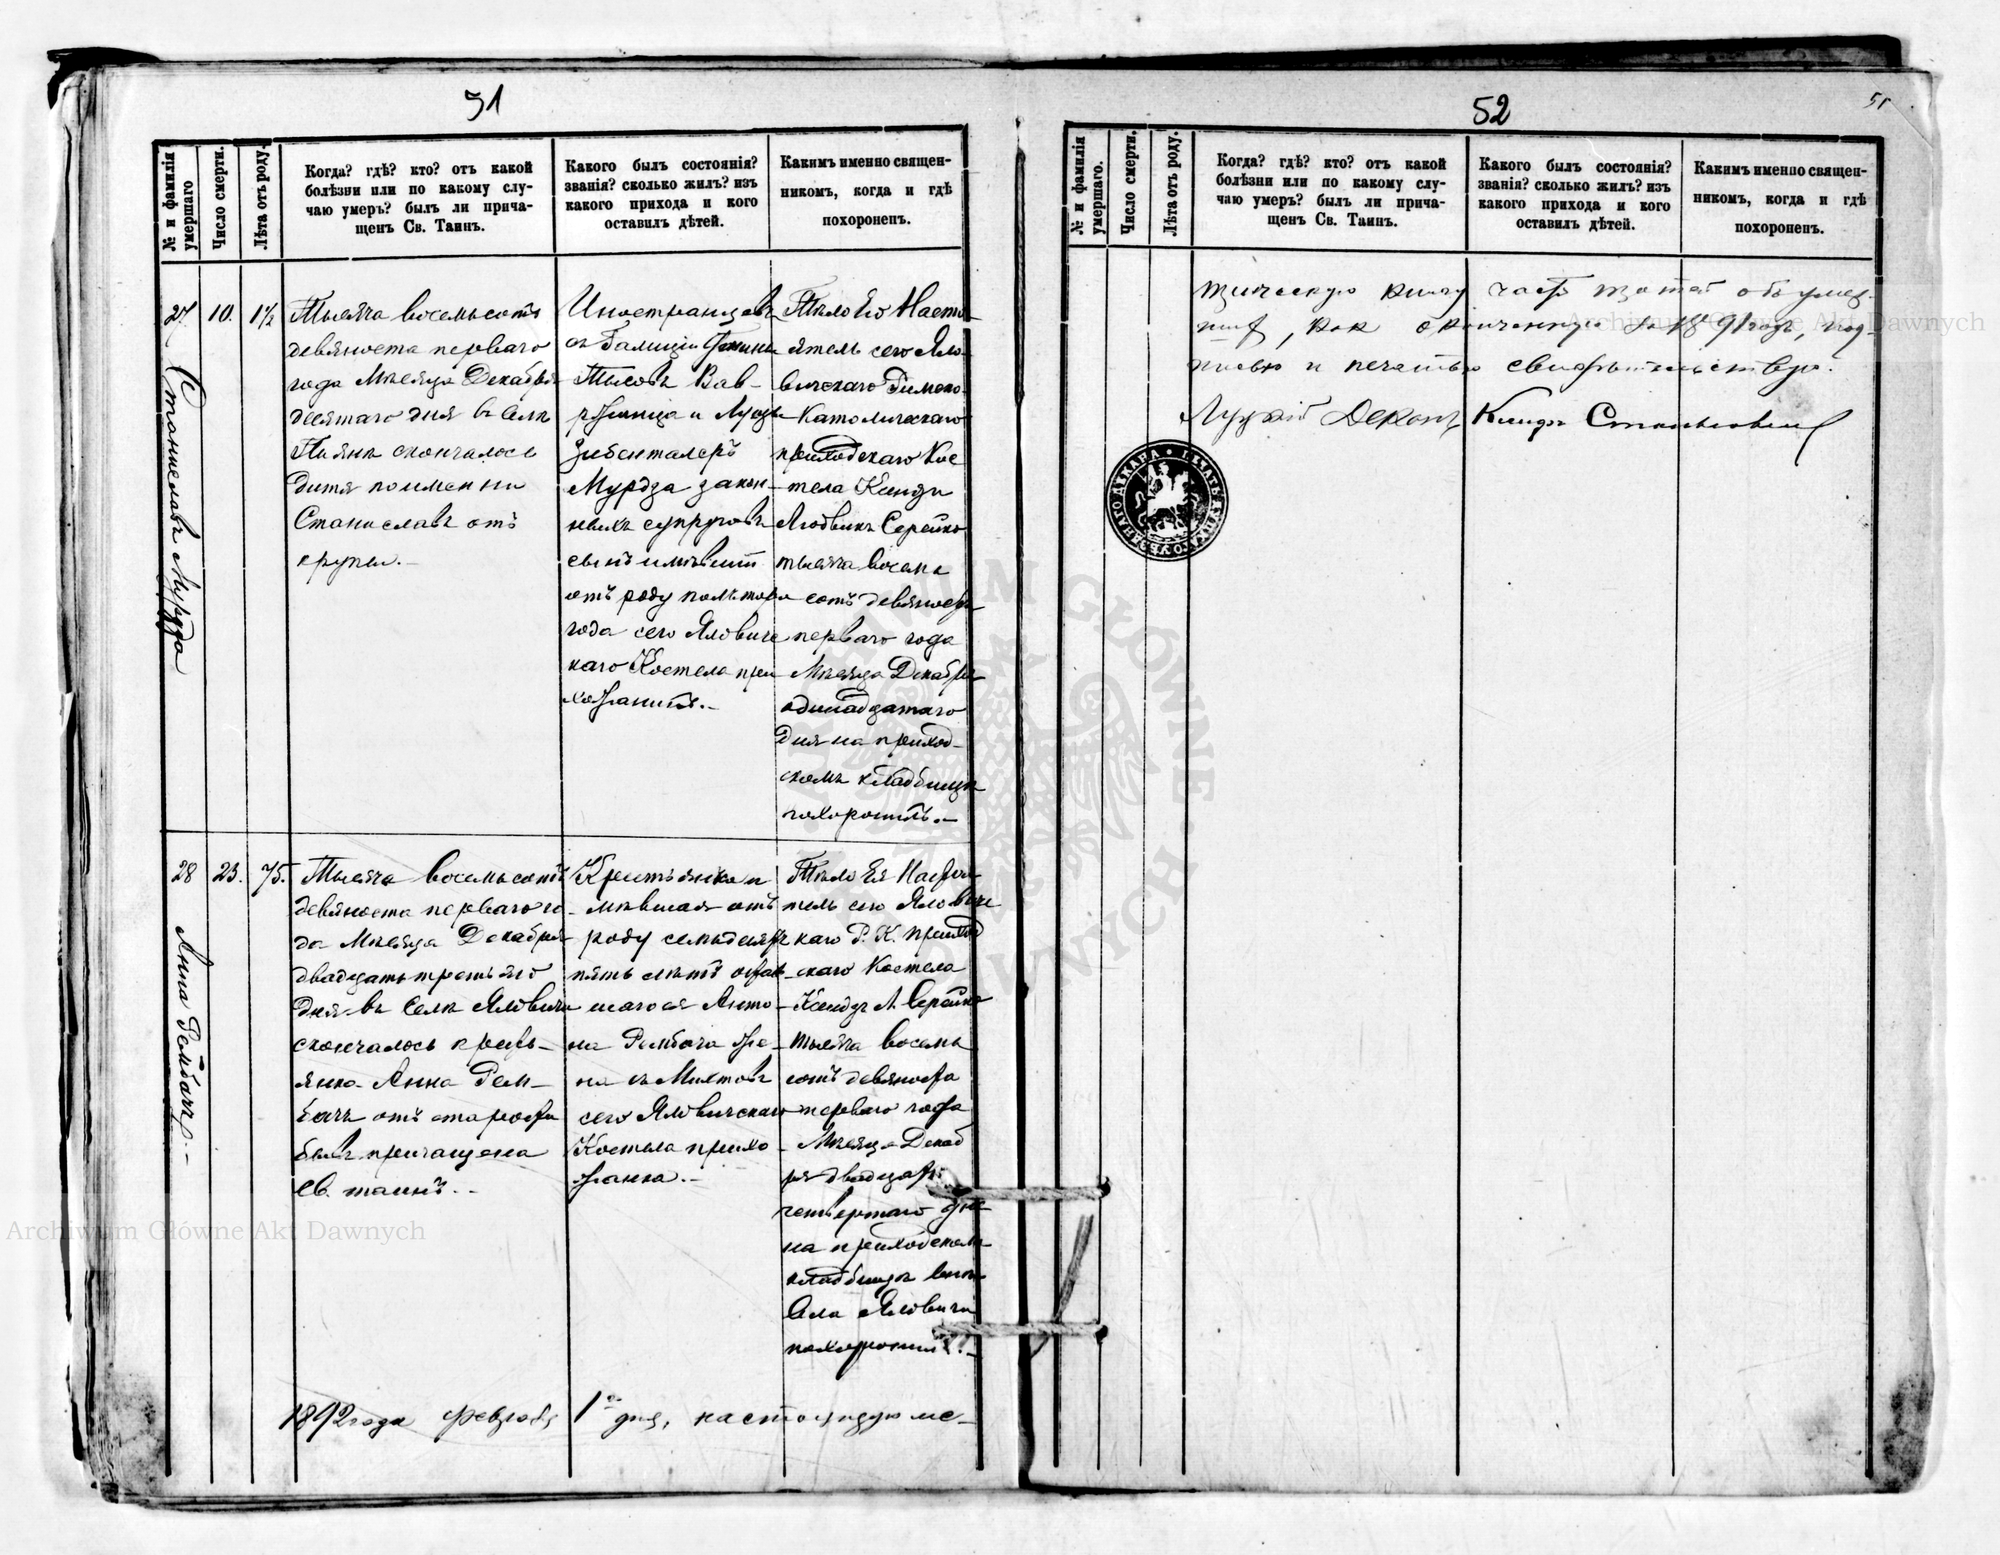 51
№ и фамилія умершаго
Число смерти.
Лѣта отъ роду.
Когда? гдѣ? кто? отъ какой
болѣзни или по какому слу-
чаю умеръ? былъ ли прича-
щенъ Св. Таинъ.
Какого былъ состоянія?
званія? сколько жилъ? изъ
какого прихода и кого
оставилъ дѣтей.
Какимъ именно священ-
никомъ, когда и гдѣ
похороненъ.
27. Станиславъ Мурдза
10.
1½
Тысяча восемьсотъ
девяноста перваго
года Мѣсяца Декабря
десятаго дня въ селѣ
скончалось
дитя по имени
Станиславъ отъ
крупы.–
Иностранцевъ
изъ Галиціи
Вав-
рѣинца и Луціи
Мурдза закон-
ныхъ супруговъ
сынъ имѣвшій
отъ роду полтора
года сего Яловичс
каго Костела при
хожанинъ.–
Тѣло Его Насто-
ятель сего Яло-
вичскаго Римско-
Католическаго
приходскаго Кос
тела Ксендзъ
Людвикъ Серейко
тысяча восемь
сотъ девяноста
перваго года
Мѣсяца Декабря
одинадцатаго
дня на приход-
скомъ кладбищѣ
похоронилъ.–
28
Анна Рембачъ.–
23.
75.
Тысяча восемьсотъ
девяноста перваго го-
да Мѣсяца Декабря
двадцать третьяго
дня въ Селѣ Яловичи
скончалось кресть-
янка Анна Рем-
бачъ отъ старости
бывъ причащена
Св. таинъ.–
Крестьянка и
мѣвшая отъ
роду семьдесятъ
пять лѣтъ остав-
шагося Анто-
на Рембача же-
на
сего Яловичскаго
Костела прихо-
жанка.–
Тѣло Ея Настоя-
тель сего Яловичс
каго Р. К. приход
скаго Костела
Ксендзъ Л. Серейко
тысяча восемь
сотъ девяноста
перваго года
Мѣсяца Декаб
ря двадцать
четвертаго дня
на приходскомъ
кладбищѣ
села Яловичи
похоронилъ.–
1892 года февраля 1го дня, настоящую ме-
52
51
№ и фамилія умершаго.
Число смерти.
Лѣта отъ роду.
Когда? гдѣ? кто? отъ какой
болѣзни или по какому слу-
чаю умеръ? былъ ли прича-
щенъ Св. Таинъ.
Какого былъ состоянія?
званія? сколько жилъ? изъ
какого прихода и кого
оставилъ дѣтей.
Какимъ именно священ-
никомъ, когда и гдѣ
похороненъ.
трическую книгу часть третей объ умер-
шихъ, какъ оконченную за 1891 годъ, под-
писью и печатью свидѣтельствую.
Луцкій Деканъ Ксендзъ
Archiwum Główne Akt Dawnych
Archiwum Główne Akt Dawnych